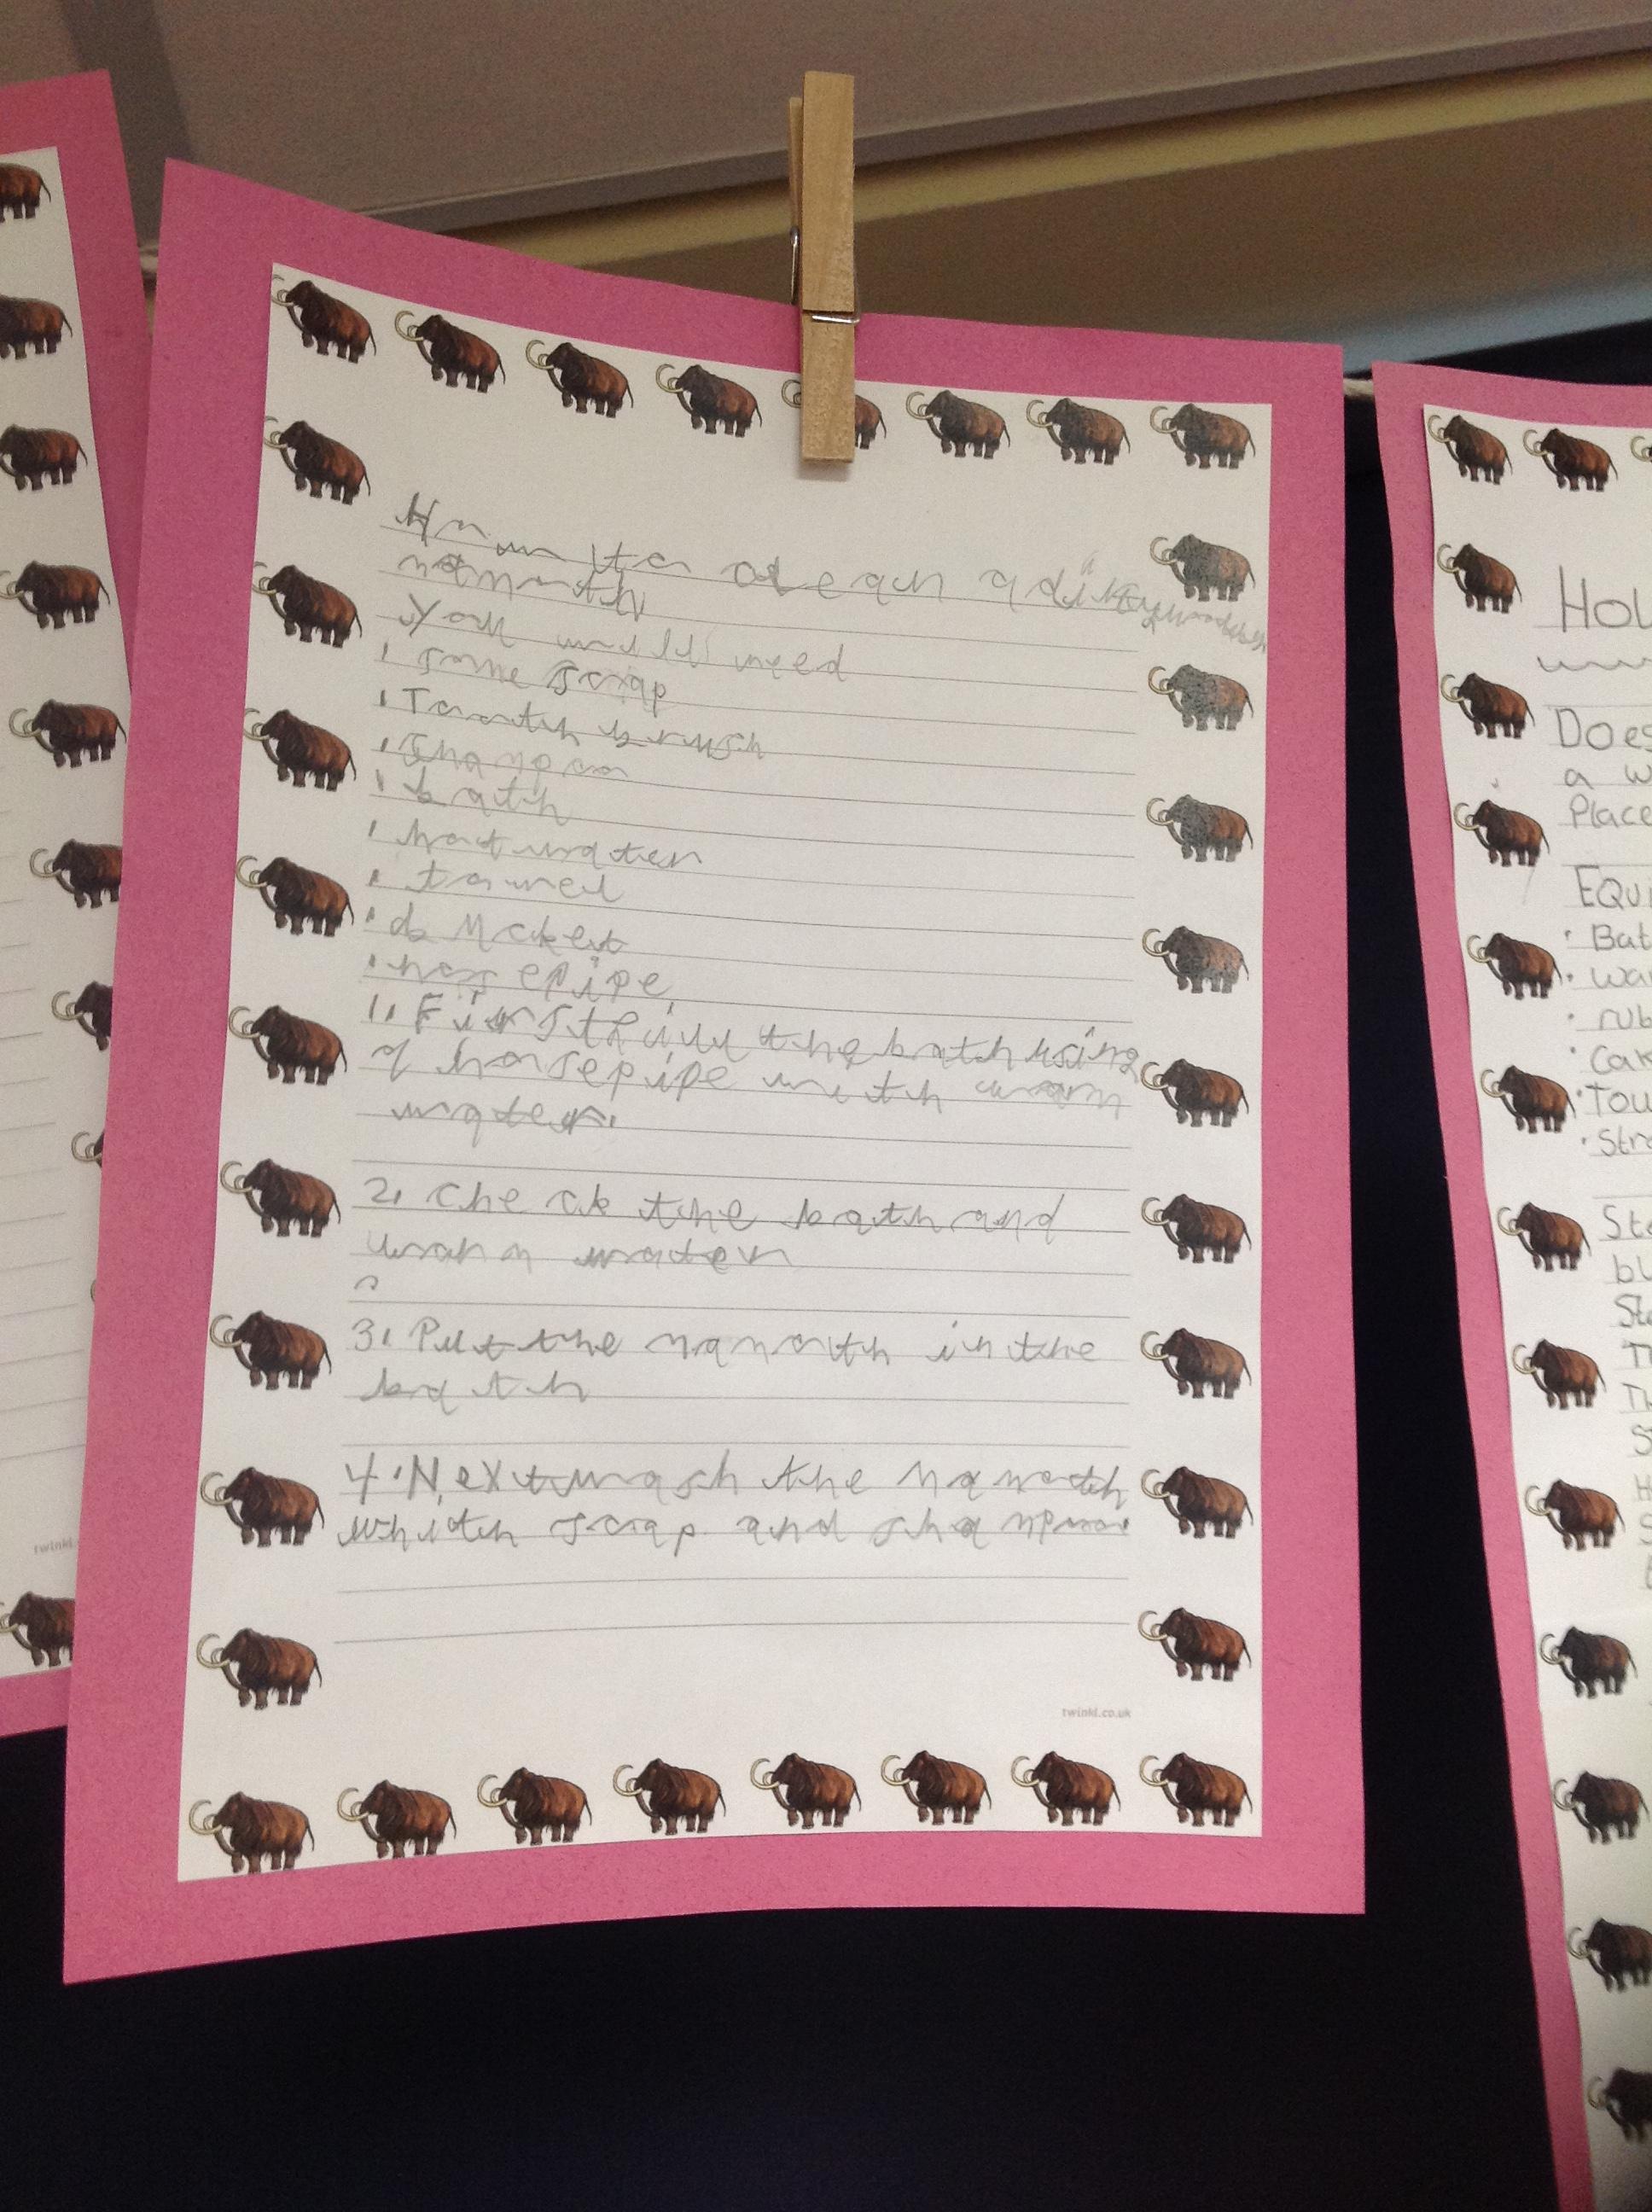 How to clean a dirty woolly
mamoth
You will need
some scrap
Tooth brush
Shanpoo
bath
hot water
towel
bucket
hosepipe
1. First fill the bath using
a horsepipe with warm
water.
2. check the bath and
warm water
3. Put the mamoth in the
bath
4. Next wash the mamoth
whith scrap and shanpoo.
twinkl.co.uk
twinkl
How
Does
a w
Place
Equi
Bat
war
rub
Tou
Str
Ste
bu
Ste
Th